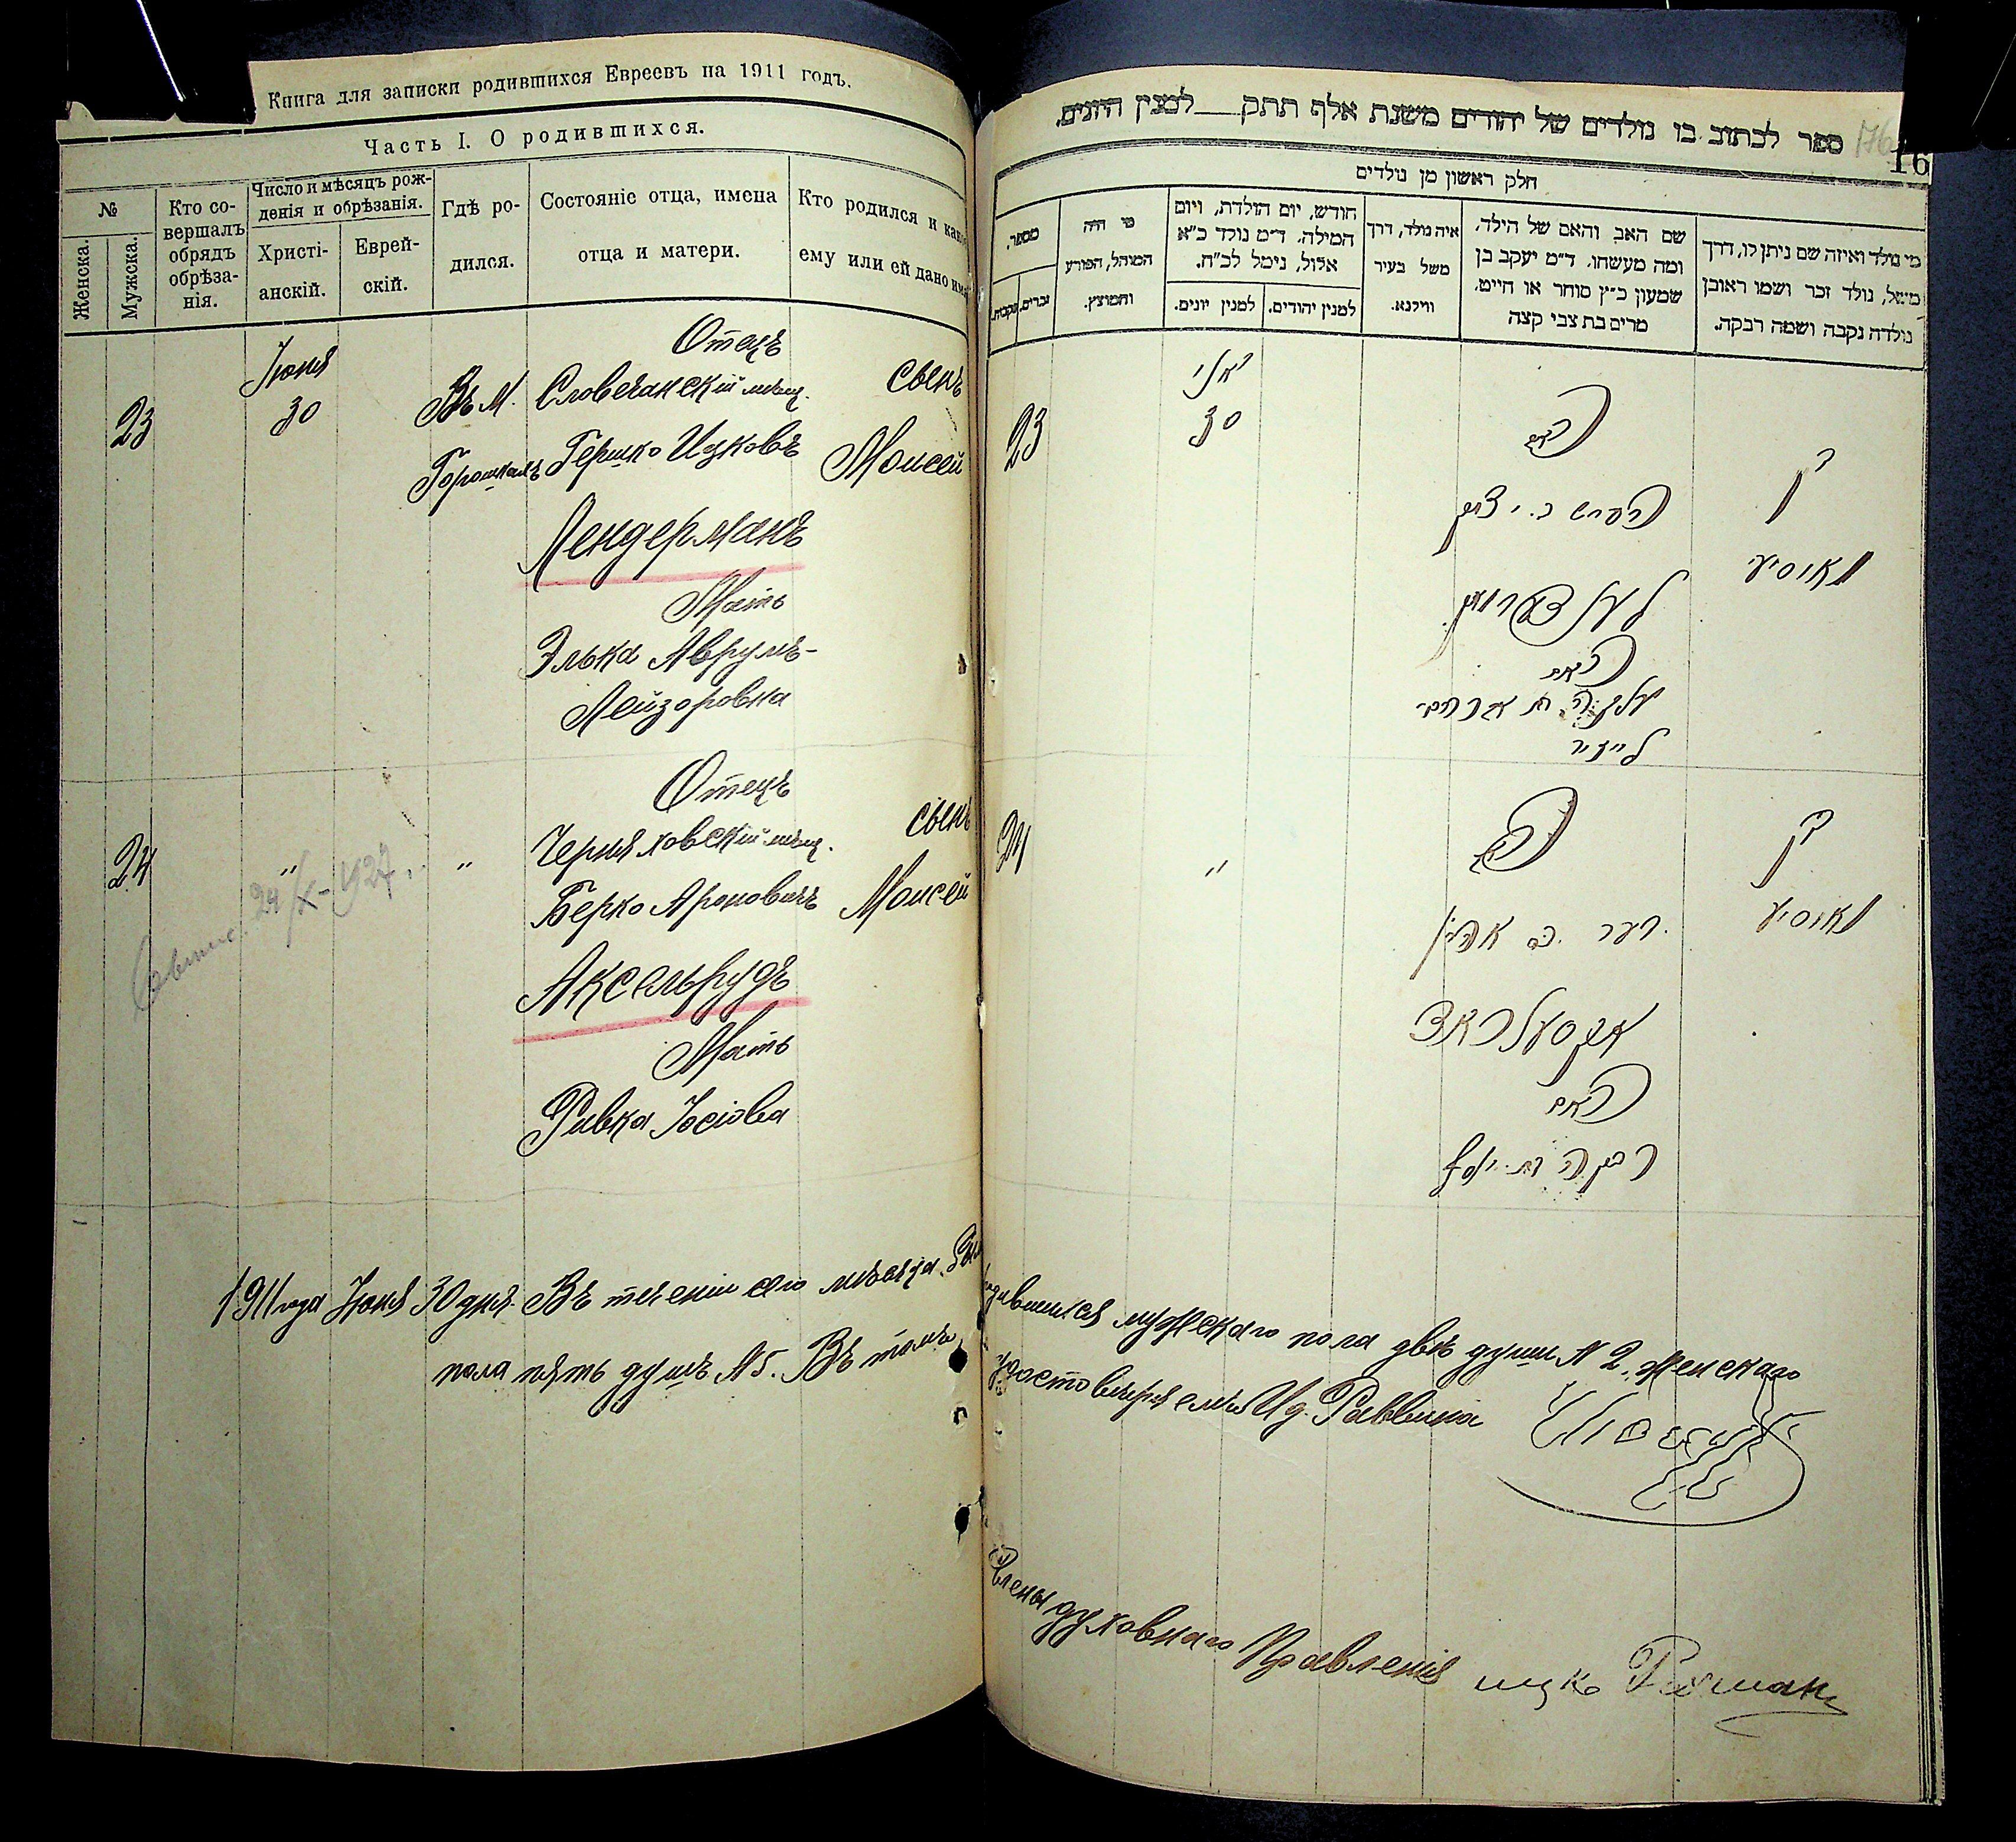 Книга для записки родившихся Евреевъ на 1911 годъ.
Часть I. О родившихся.
№
Женска.
Мужска.
Кто со-
вершалъ
обрядъ
обрѣза-
нія.
Число и мѣсяцъ рож-
денія и обрѣзанія.
Христі-
анскій.
Еврей-
скій.
Гдѣ ро-
дился.
Состояніе отца, имена
отца и матери.
Кто родился и како
ему или ей дано имя
23
Іюня
30
Въ М.
Горошкахъ
Отецъ
Словечанскій мѣщ.
Гершко Ицковъ
Лендерманъ
Мать
Элька Аврумъ-
Лейзоровна
сынъ
Моисей
24
"
24/X-1927
"
Отецъ
Черняховскій мѣщ.
Берко Ароновичъ
Аксельрудъ
Мать
Ривка Іосіова
сынъ
Моисей
1911 года Іюня 30 дня. Въ теченіи сего мѣсяца
пола пять душъ №5. Въ томъ
ספר לכתוב בו נולדים של יהודים משנת אלף תתק לטנין היונים.
176
16
חלק ראשון מן נולדים
מספר,
זכרים.
נקבות.
מי היה
המוהל, הפורע
והמוצץ.
חודש, יום הולדת, ויום
המילה. ד״מ נולד כ״א
אלול, נימל לכ״ח.
למנין יונים.
למנין יהודים.
איה נולד, דרך
משל בעיר
ווילנא.
שם האב והאם של הילד,
ומה מעשהו. ד״מ יעקב בן
שמעון כ״ץ סוחר או חייט.
מרים בת צבי קצה
מי נולד ואיזה שם ניתן לו, דרך
משל, נולד זכר ושמו ראובן
נולדה נקבה ושמה רבקה.
23
יאלי
30
האב
הערש ב. יצחק
לענדערמאן
האם
עלקה בת אברהם
לייזער
בן
מאוסיע
24
"
האב
בער ב אהרן
אקסעלראד
האם
רבקה בת יוסף
בן
מאוסיע
родившихся мужескаго пола двѣ души №2. женскаго
удостовѣряемъ И д. Раввина
Члены духовнаго Правленія ицко